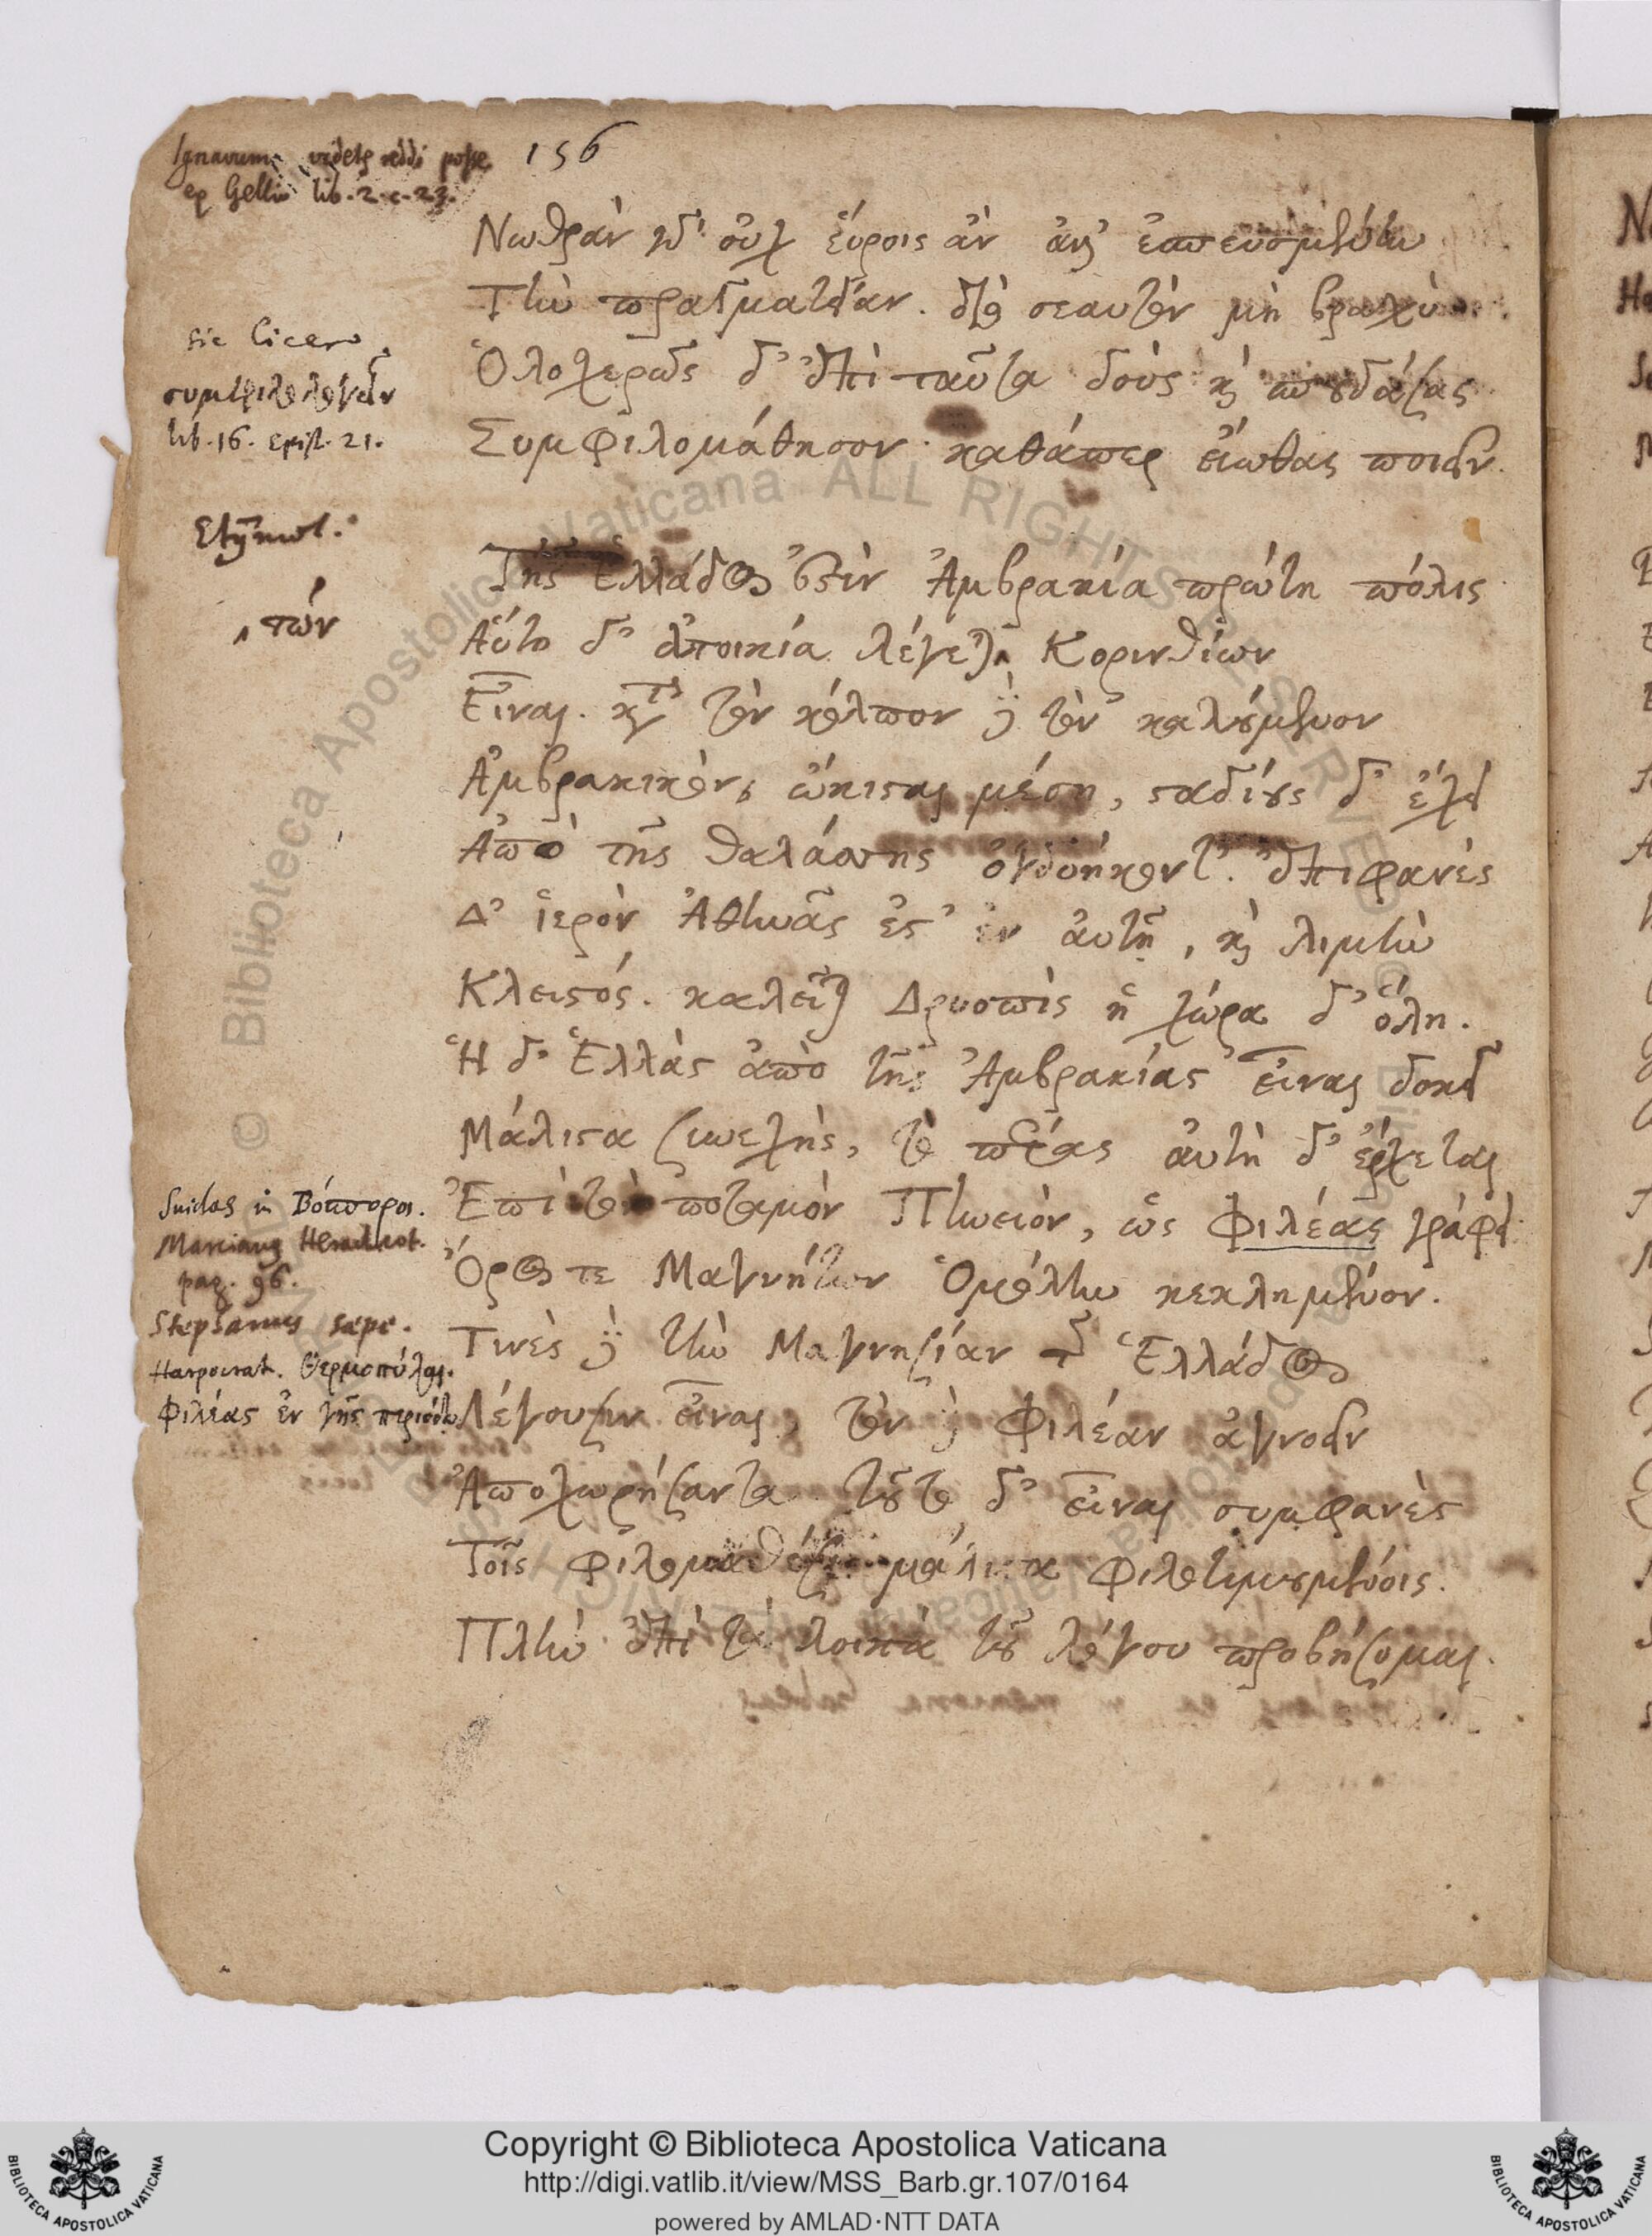 156
Ignavum videtis reddi posse
ex Gellio lib. 2. c. 23.
Νωθρὰν γδ' οὐχ εὕροις ἂν ἀλλ' ἐσπευσμένην
Τὴν πραγματείαν. διὸ σεαυτὸν μὴ βραχὺ
Ὁλοχερῶς δ' ἐπὶ ταῦτα δοὺς καὶ σπουδάσας
Συμφιλομάθησον καθάπερ εἴωθας ποιεῖν.
sic Cicero
συμφιλολογεῖν
lib. 16. epist. 21.
Etymol.
Τῆς Ἑλλάδος ἐστὶν Ἀμβρακία πρώτη πόλις
Αὕτη δ' ἀποικία λέγεται Κορινθίων
τῶν
Εἶναι. κατὰ τὸν κόλπον δὲ τὸν καλούμενον
Ἀμβρακικὸν, ᾤκισται μέση, σταδίους δ' ἔχει
Ἀπὸ τῆς θαλάσσης ὀγδοήκοντ'. ἐπιφανὲς
Δ' ἱερὸν Ἀθηνᾶς ἐστ' ἐν αὐτῇ, καὶ λιμὴν
Κλειστός. καλεῖται Δρυοπὶς ἡ χώρα δ' ὅλη.
Ἡ δ' Ἑλλὰς ἀπὸ τῆς Ἀμβρακίας εἶναι δοκεῖ
Μάλιστα συνεχὴς, τὸ πέρας αὐτὴ δ' ἔρχεται
Ἐπὶ τὸν ποταμὸν Πηνειὸν, ὡς Φιλέας γράφει
Ὄρος τε Μαγνήτων Ὁμόλην κεκλημένον.
Τινὲς δὲ τὴν Μαγνησίαν τῆς Ἑλλάδος
Λέγουσιν εἶναι, τὸν δὲ Φιλέαν ἀγνοεῖν
Ἀποχωρήσαντα τοῦτο δ' εἶναι συμφανὲς
Τοῖς φιλομαθέσι μάλιστα φιλοτιμουμένοις.
Πλὴν ἐπὶ τὰ λοιπὰ τοῦ λόγου προβήσομαι.
Suidas in Βόσπορος.
Marcianus Heracleot.
pag. 96.
Stephanus saepe.
Harpocrat. Θερμοπύλαι.
Φιλέας ἐν γῆς περιόδῳ
© Biblioteca Apostolica Vaticana ALL RIGHTS RESERVED
Copyright © Biblioteca Apostolica Vaticana
http://digi.vatlib.it/view/MSS_Barb.gr.107/0164
powered by AMLAD·NTT DATA
BIBLIOTECA APOSTOLICA VATICANA
BIBLIOTECA APOSTOLICA VATICANA